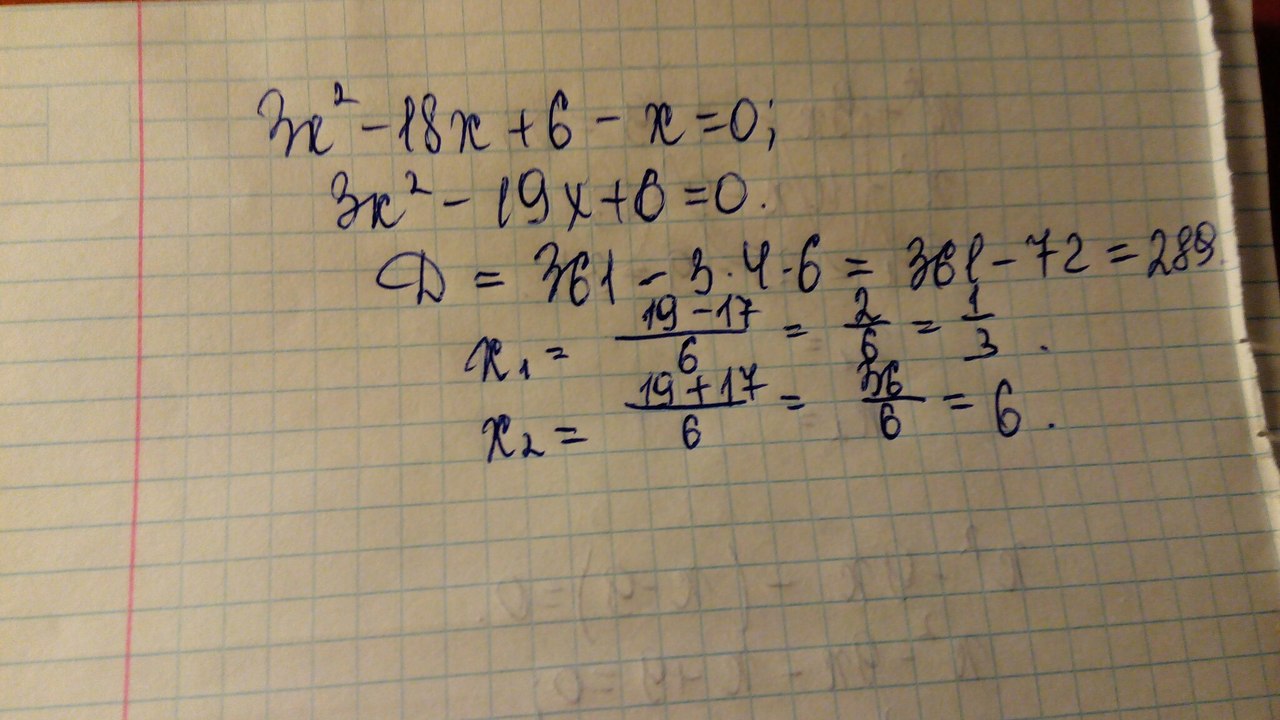 3x² - 18x + 6 - x = 0;
3x² - 19x + 6 = 0.
D = 361 - 3·4·6 = 361 - 72 = 289.
x₁ = (19 - 17)/6 = 2/6 = 1/3.
x₂ = (19 + 17)/6 = 36/6 = 6.